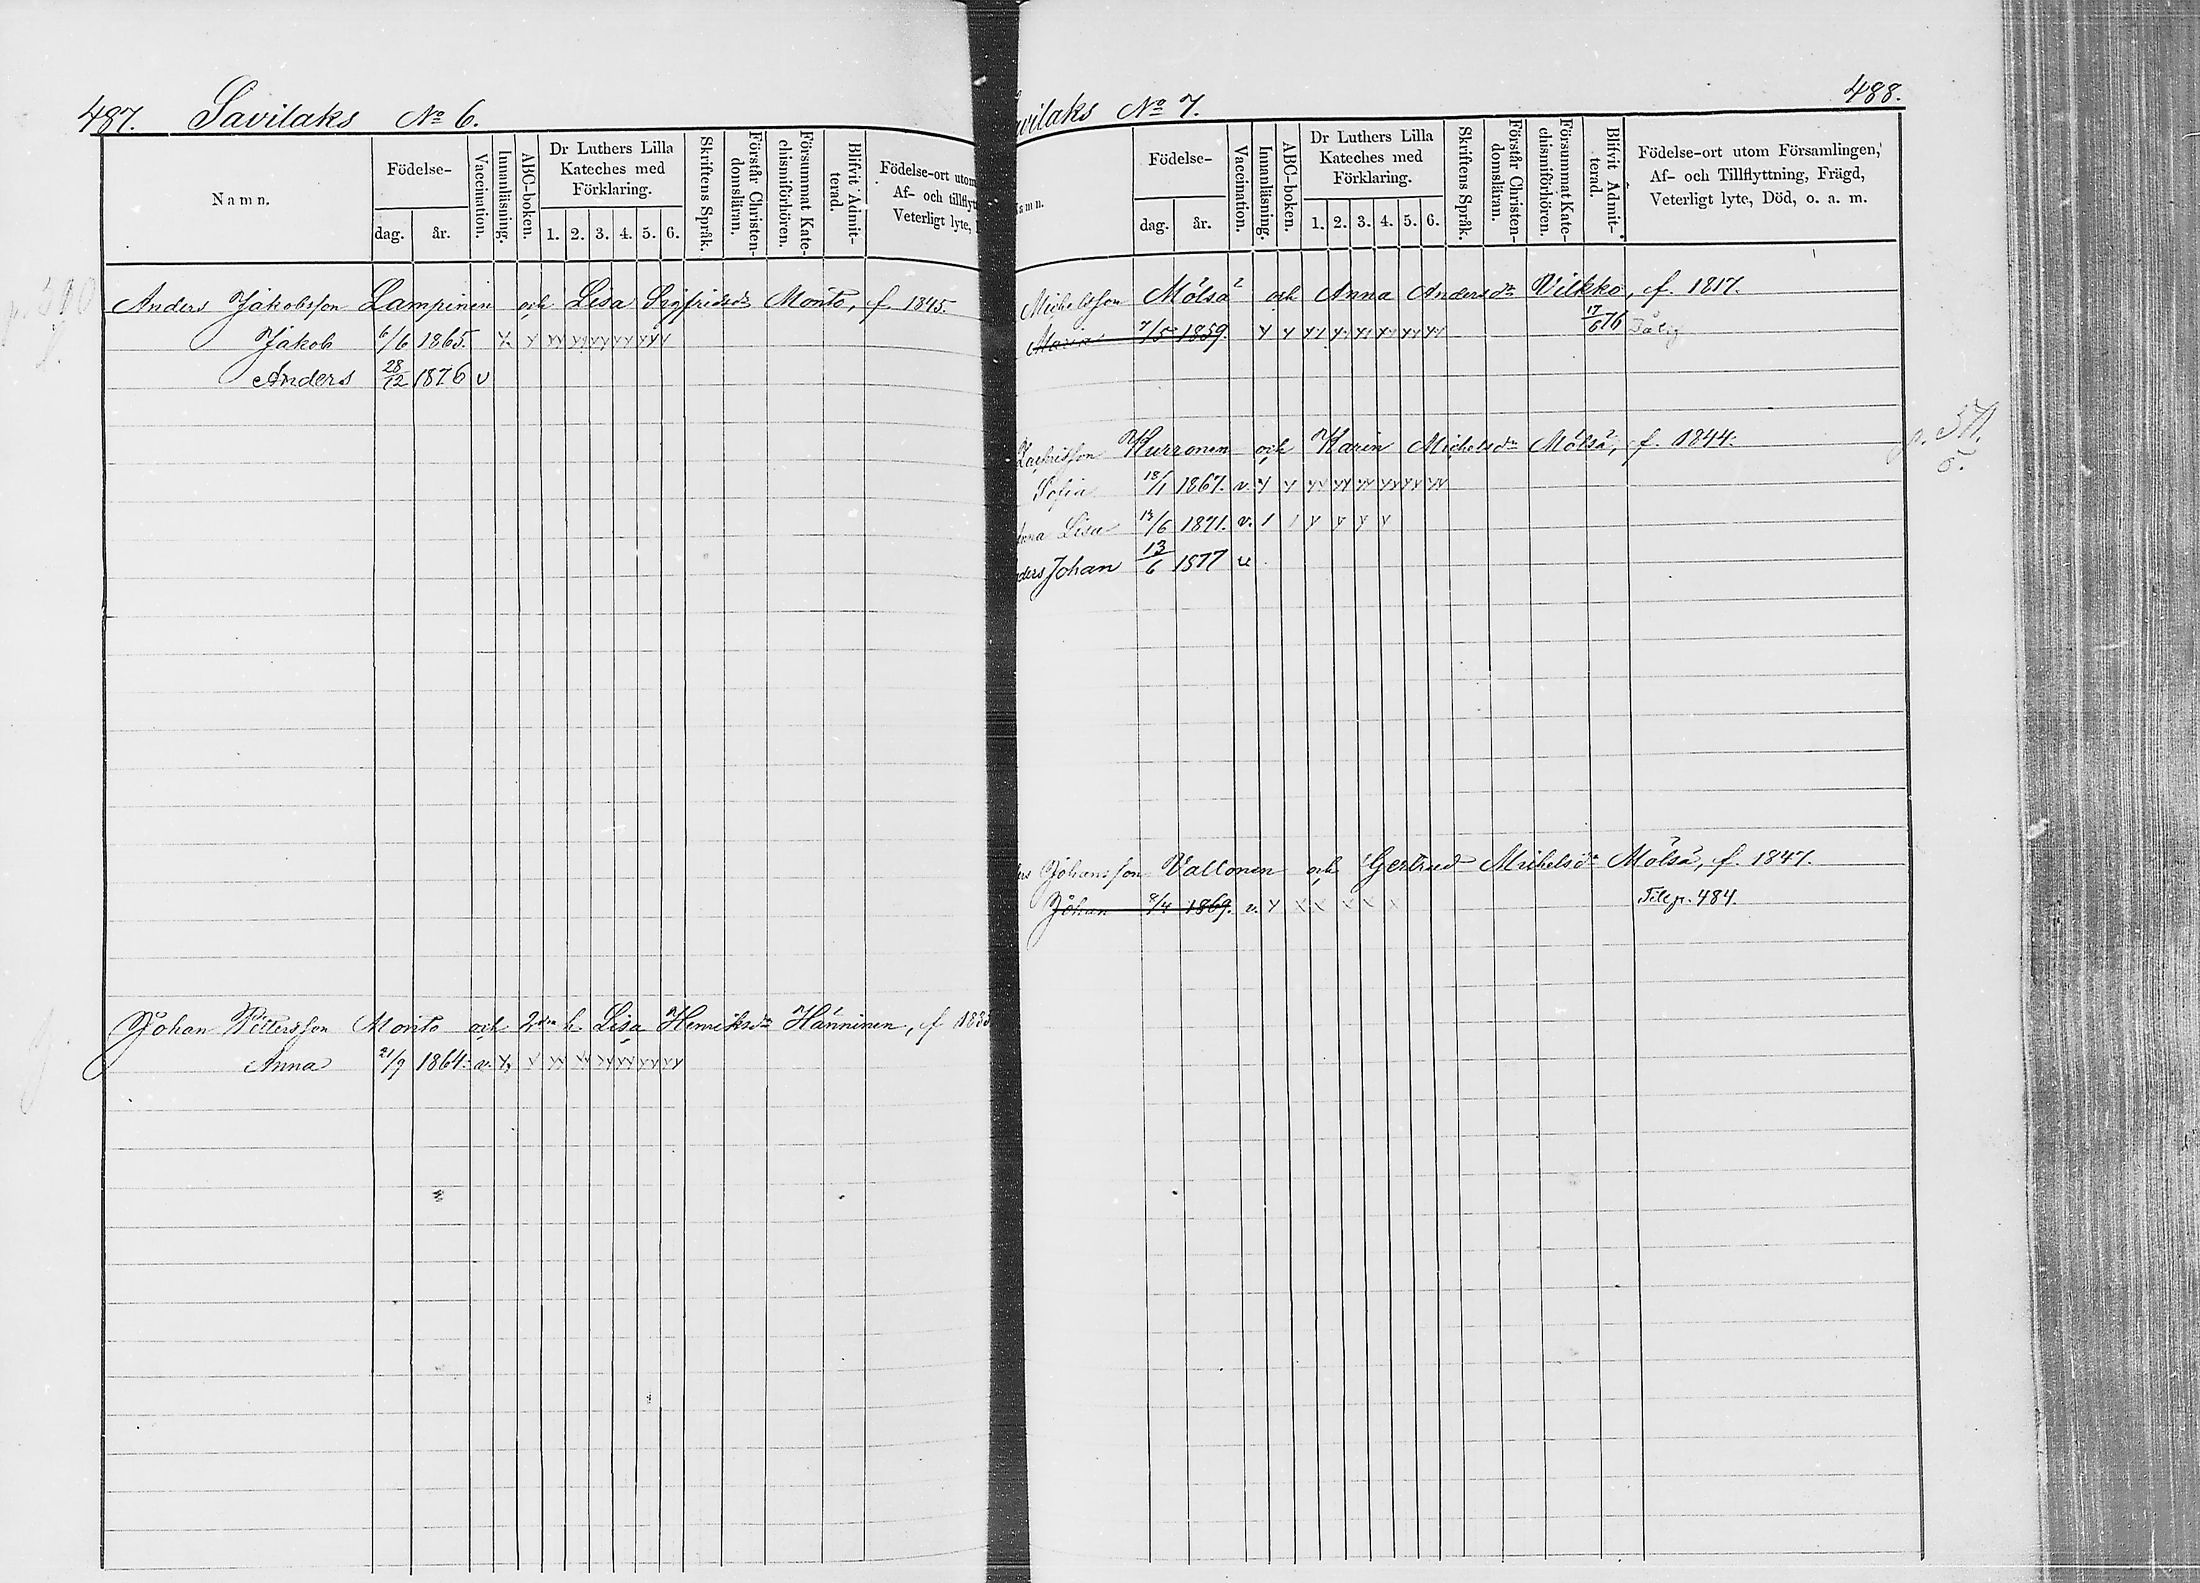 487. Savilaks No 6.
Namn.
Födelse-
dag. år.
Vaccination.
Innanläsning.
ABC-boken.
Dr Luthers Lilla
Kateches med
Förklaring.
1. 2. 3. 4. 5. 6.
Skriftens Språk.
Förstår Christen-
domsläran.
Försummat Kate-
chismiförhören.
Blifvit Admit-
terad.
Födelse-ort utom
Af- och tillflyt
Veterligt lyte,
Anders Jakobsson Lampinen och Lisa Sigfridsdr Monto, f. 1845.
Jakob 6/6 1865.
Anders 28/12 1876 v
Johan Pettersson Monto och 2dra h. Lisa Henriksdr Hänninen, f 183
Anna 21/9 1864. v.
488.
vilaks No 7.
mn.
Födelse-
dag. år.
Vaccination.
Innanläsning.
ABC-boken.
Dr Luthers Lilla
Kateches med
Förklaring.
1. 2. 3. 4. 5. 6.
Skriftens Språk.
Förstår Christen-
domsläran.
Försummat Kate-
chismiförhören.
Blifvit Admit-
terad.
Födelse-ort utom Församlingen,
Af- och Tillflyttning, Frägd,
Veterligt lyte, Död, o. a. m.
Michelsson Mölsä och Anna Andersdr Vilkko, f. 1817.
Maria 7/5 1859. 17/6 76
Zachrisson Kurronen och Karin Michelsdr Mölsä, f. 1844.
Sofia 18/1 1867. v.
Anna Lisa 13/6 1871. v.
ders Johan 13/6 1877 v
rs Johansson Vallonen och Gertrud Michelsdr Mölsä, f. 1847.
Johan 8/4 1869. v. Till p. 484.